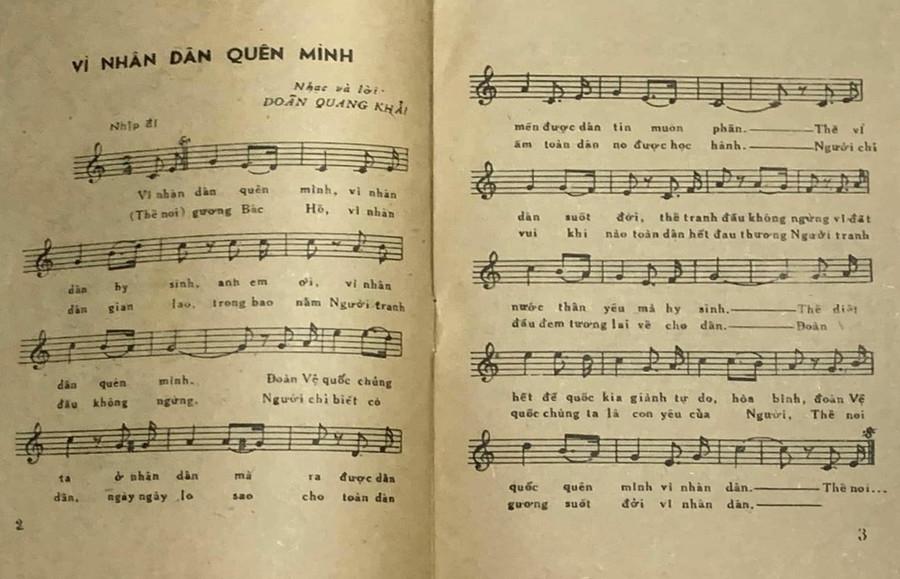 VÌ NHÂN DÂN QUÊN MÌNH
Nhạc và lời:
DOÃN QUANG KHẢI
Nhịp đi
Vì nhân dân quên mình, vì nhân
(Thề noi) gương Bác Hồ, vì nhân
dân hy sinh, anh em ơi, vì nhân
dân gian lao, trong bao năm Người tranh
dân quên mình. Đoàn Vệ quốc chúng
đấu không ngừng. Người chỉ biết có
ta ở nhân dân mà ra được dân
dân, ngày ngày lo sao cho toàn dân
2
mến được dân tin muôn phần. Thề vì
ấm toàn dân no được học hành. Người chỉ
dân suốt đời, thề tranh đấu không ngừng vì đất
vui khi nào toàn dân hết đau thương Người tranh
nước thân yêu mà hy sinh. Thề diệt
đấu đem tương lai về cho dân. Đoàn
hết đế quốc kia giành tự do, hòa bình, đoàn Vệ
quốc chúng ta là con yêu của Người, Thề noi
quốc quên mình vì nhân dân. Thề noi...
gương suốt đời vì nhân dân.
3